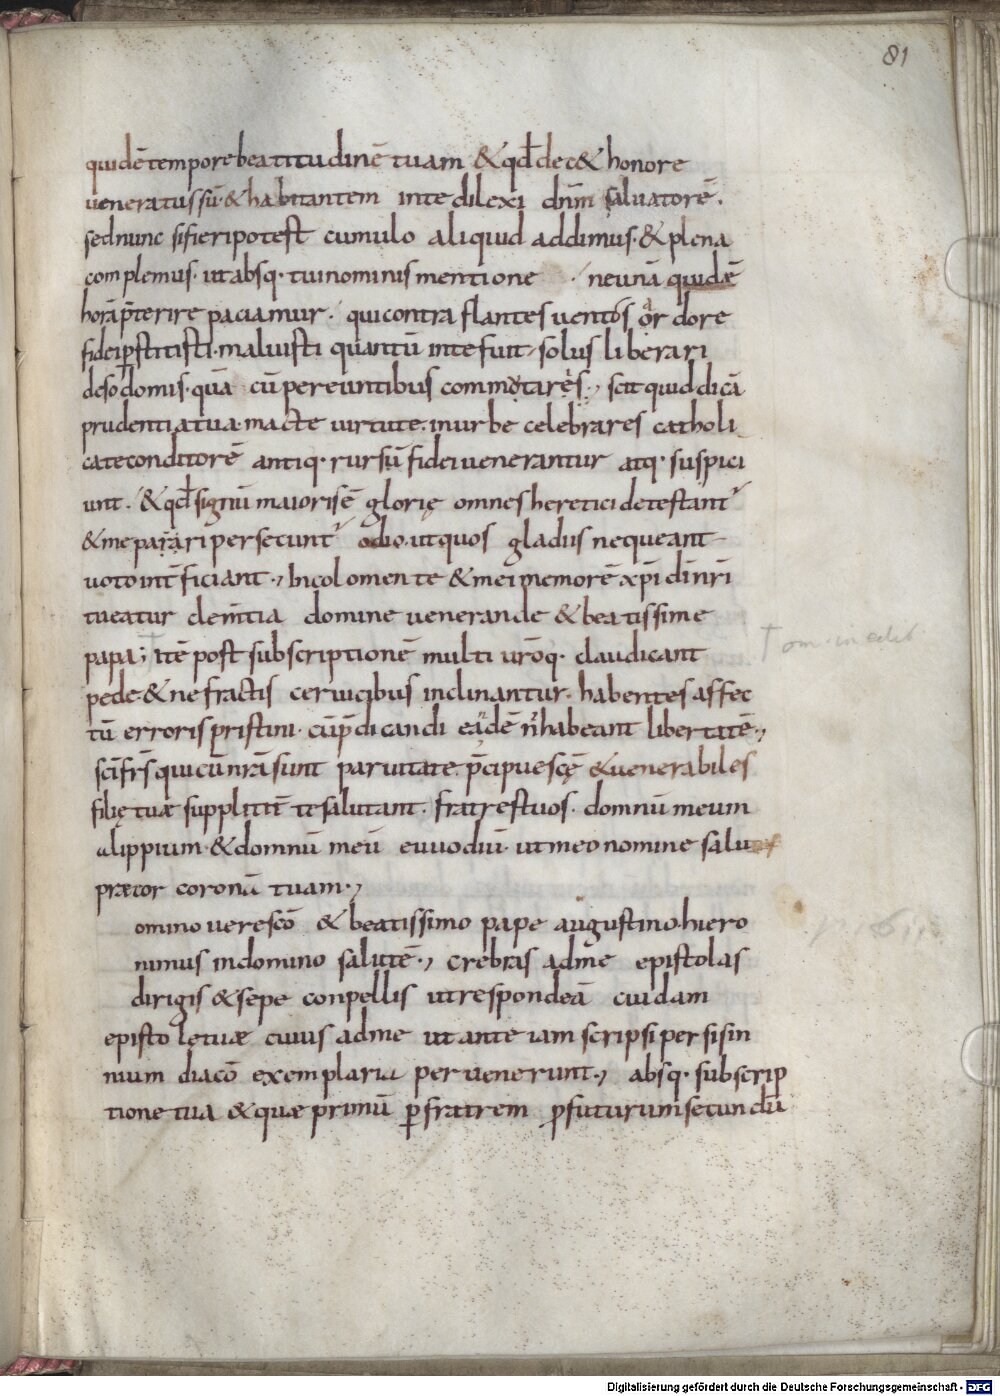 81
quidē tempore beatitudinē tuam & qd̄ dec& honore
veneratus sū· & habitantem inte dilexi dn̄m salvatorē.
sed nunc si fieri potest cumulo aliquid addimus· & plena
complemus· ut absq· tui nominis mentione · ne unā quidē
horā p̄terire paciamur· qui contra flantes ventos ardore
fidei ꝑstitisti· maluisti quantū inte fuit solus liberari
de sodomis· quā cū pereuntibus commorareris·, scit quid dicā
prudentia tua· macte virtute· in urbe celebrares catholi
ca te conditorē antiq· rursū fidei venerantur atq· suspici
unt· & qd̄ signū maioris ē glorię omnes heretici detestant᷑
& me pari persecunt᷑ odio, ut quos gladiis nequeant
voto int̄ficiant·, Incolomen te & mei memorē xp̄i dī nr̄i
tueatur clem̄tia domine venerande & beatissime
papa; itē post subscriptionē multi ur̄oq· claudicant
pede & ne fractis cervicibus inclinantur· habentes affec
tū erroris pristini· cū p̄dicandi eādē n̄ habeant libertatē·,
sc̄i fr̄s qui cū nr̄a sunt parvitate p̄cipue sc̄ę & venerabiles
filię tuæ supplitit̄ te salutant· fratres tuos· domnū meum
alippium· & domnū meū euvodiū· ut meo nomine salu
præcor coronā tuam·,
omino vere sc̄o & beatissimo pape augustino hiero
nimus in domino salutē·, crebras ad me epistolas
dirigis & sepe conpellis ut respondeā cuidam
epistole tuæ cuius ad me ut ante iam scripsi per sisin
nium diacō exemplaria pervenerunt·, absq· subscrip
tione tua & quæ primū ꝑ fratrem ꝓfuturum secundū
Digitalisierung gefördert durch die Deutsche Forschungsgemeinschaft - DFG